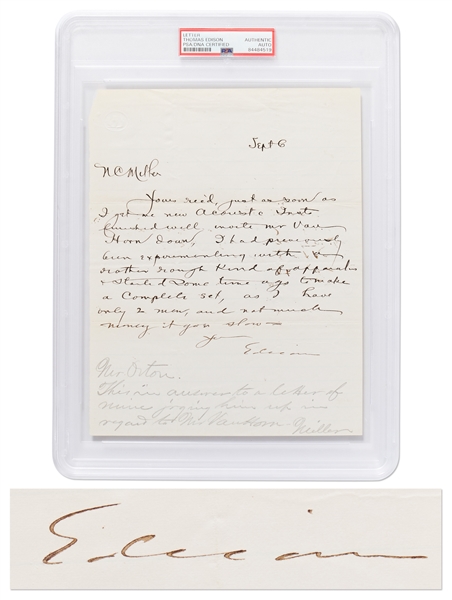 LETTER
THOMAS EDISON
PSA/DNA CERTIFIED
AUTHENTIC
AUTO
PSA
84484519
Sept 6
N C Miller
Yours recd, just as soon as
I get me new Acoustic Insts
finished will invite Mr Van
Horn down, I had previously
been experimenting with a
rather rough kind of apparatus
& started some time ago to make
a Complete set, as I have
only 2 men, and not much
money it goes slow—
Edison
Mr Orton.
This is in answer to a letter of
mine jogging him up in
regard to Mr Van Horn Miller
Edison